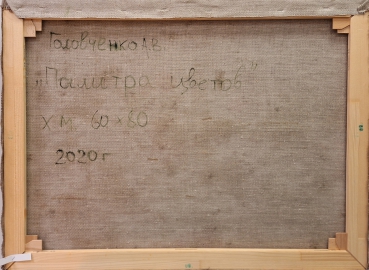 Головченко А В
"Палитра цветов"
х м 60 х 80
2020 г